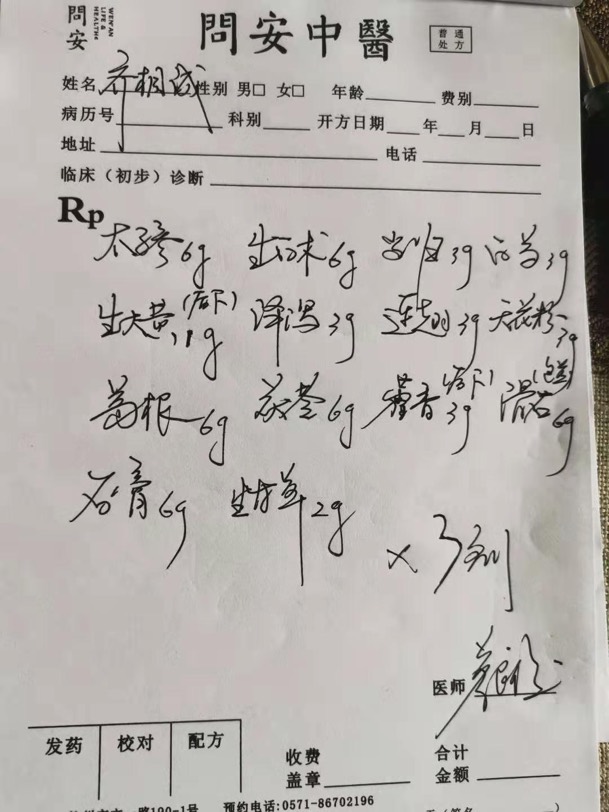 問安
WEN'AN
LIFE &
HEALTH
問安中醫
普通
处方
姓名 性别 男□ 女□ 年龄 费别
病历号 科别 开方日期 年 月 日
地址 电话
临床（初步）诊断
Rp
太子参6g 生白术6g 当归3g 白芍3g
生大黄(后下) g 泽泻3g 连翘3g 天花粉3g
葛根6g 茯苓6g 藿香(后下)3g 滑石(包煎)6g
石膏6g 生甘草2g
×3剂
医师
发药 校对 配方
收费
盖章
合计
金额
路190-1号 预约电话:0571-86702196